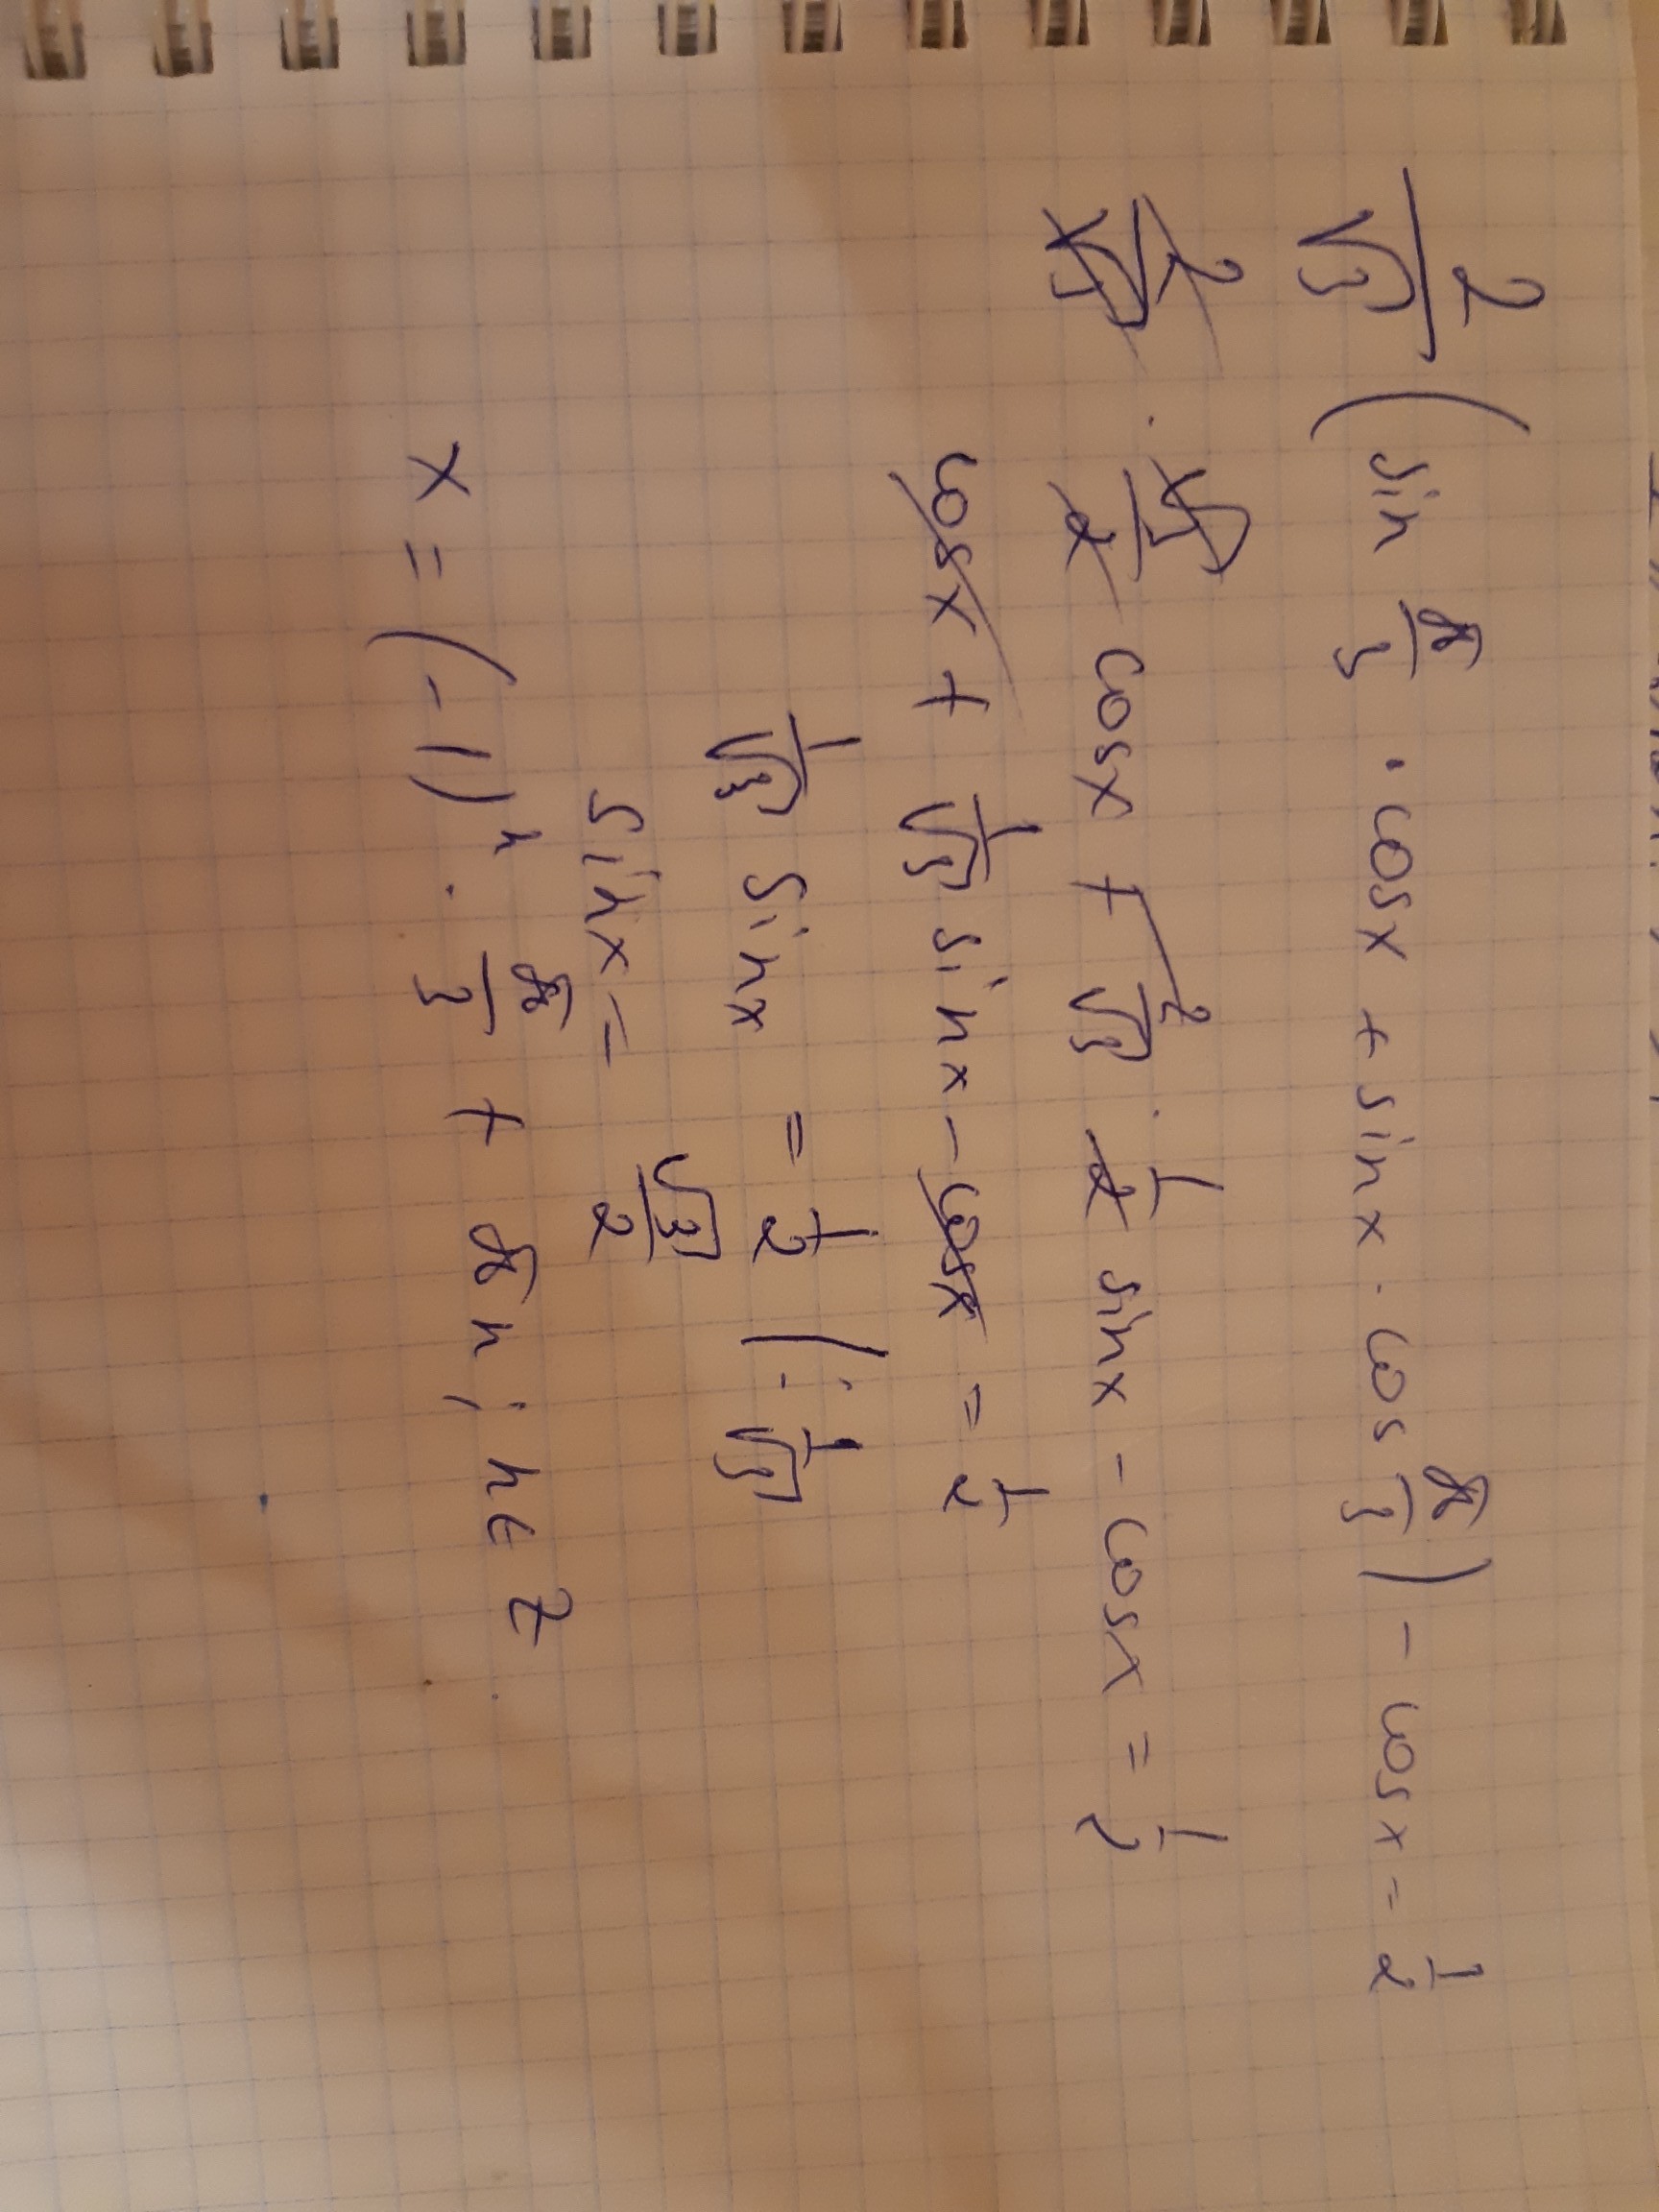 2/√3 (sin π/3 · cosx + sinx · cos π/3) - cosx = 1/2
2/√3 · √3/2 cosx + 2/√3 · 1/2 sinx - cosx = 1/2
cosx + 1/√3 sinx - cosx = 1/2
1/√3 sinx = 1/2 | : 1/√3
sinx = √3/2
x = (-1)ⁿ · π/3 + πn ; n ∈ Z